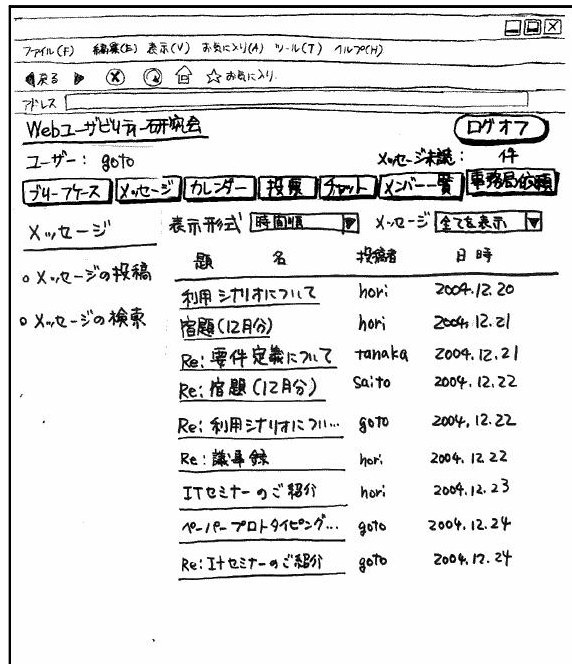 ファイル(F) 編集(E) 表示(V) お気に入り(A) ツール(T) ヘルプ(H)
戻る お気に入り
アドレス
Webユーザビリティー研究会 ログオフ
ユーザー: goto メッセージ未読: 件
ブリーフケース メッセージ カレンダー 投票 チャット メンバー一覧 事務局依頼
メッセージ 表示形式 時間順 メッセージ 全てを表示
題名 投稿者 日時
○メッセージの投稿
○メッセージの検索
利用シナリオについて hori 2004.12.20
宿題(12月分) hori 2004.12.21
Re: 要件定義について tanaka 2004.12.21
Re: 宿題(12月分) saito 2004.12.22
Re: 利用シナリオについ… goto 2004.12.22
Re: 議事録 hori 2004.12.22
ITセミナーのご紹介 hori 2004.12.23
ペーパープロトタイピング… goto 2004.12.24
Re: ITセミナーのご紹介 goto 2004.12.24